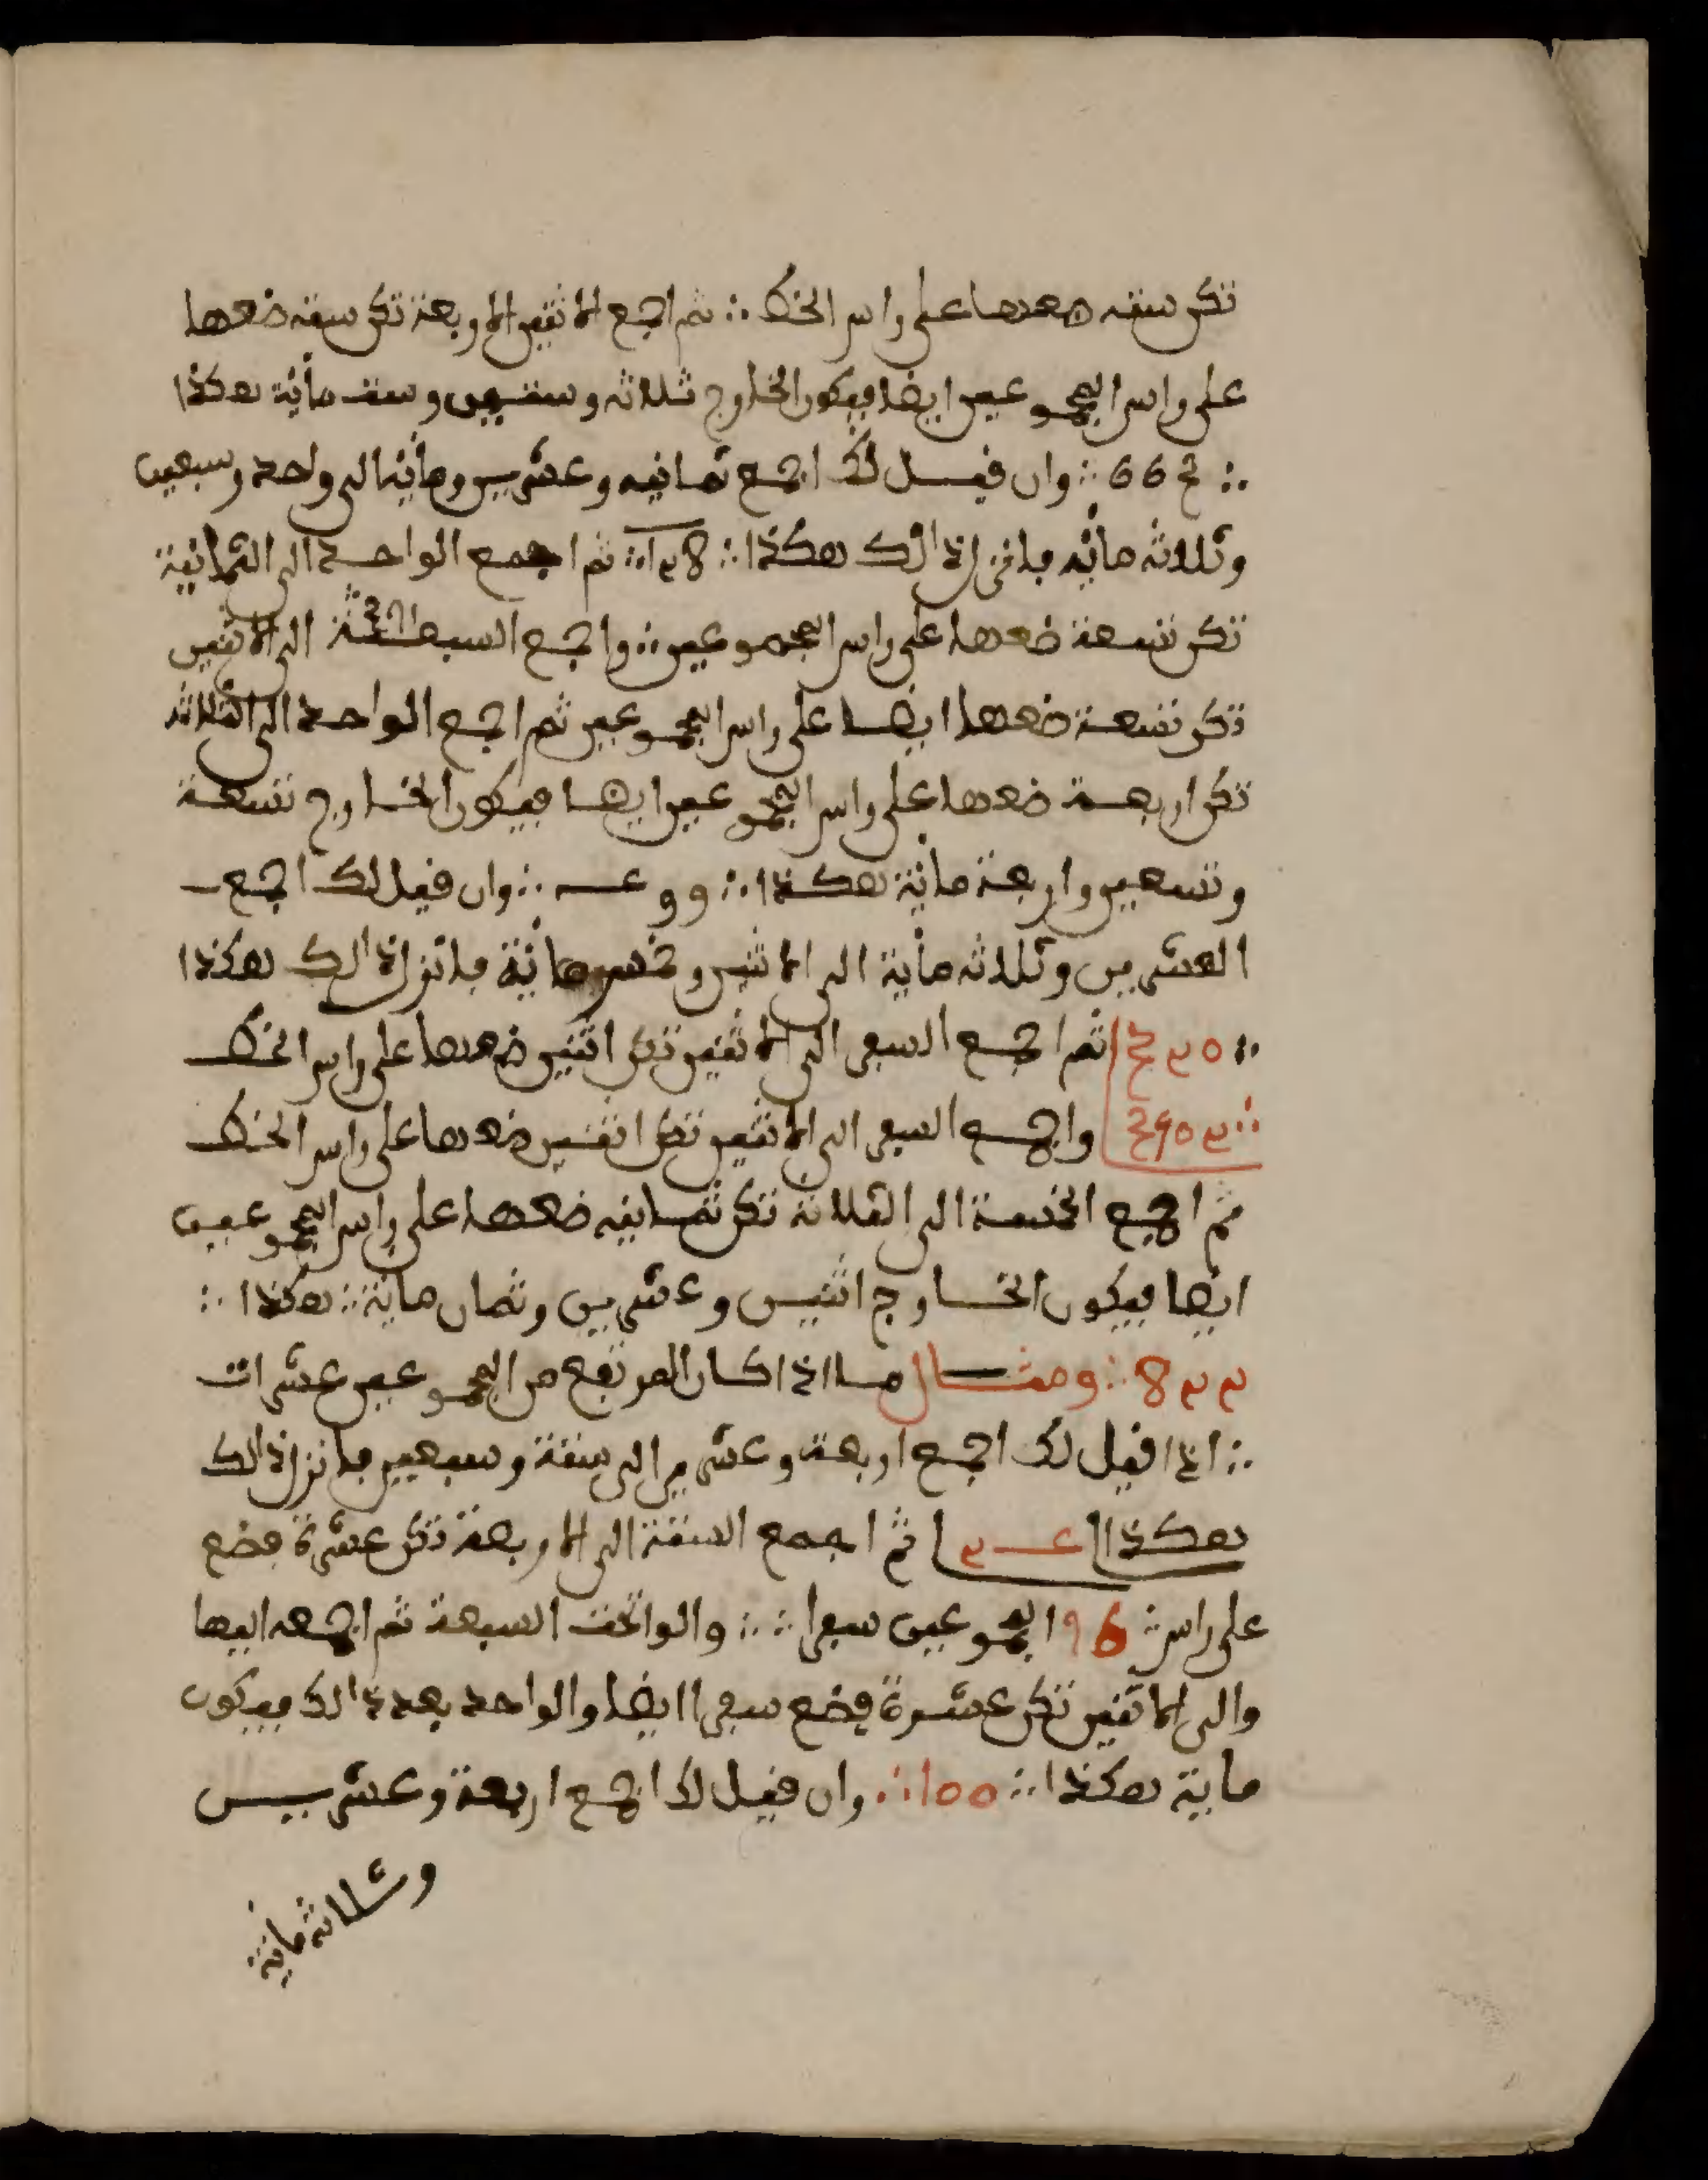 تكن ستة ضعها على راس الخط ∴ ثم اجمع الاثنين الاربعة تكن ستة ضعها
على راس المجموعين ايضا فيكون الخارج ثلاثة وستين وستة مائة هكذا
∴ 3 6 6 ∴ وان قيل لك اجمع ثمانية وعشرين ومائة الى واحد وسبعين
وثلاثة مائة فانزل ذالك هكذا ∴ 821 ∴ ثم اجمع الواحد الى الثمانية
تكن تسعة ضعها على راس المجموعين ∴ واجمع السبعة الى الاثنين
تكن تسعة ضعها ايضا على راس المجموعين ثم اجمع الواحد الى الثلاثة
تكن اربعة ضعها على راس المجموعين ايضا فيكون الخارج تسعة
وتسعين واربعة مائة هكذا ∴ 994 ∴ وان قيل لك اجمع
العشرين وثلاثة مائة الى الاثنين وخمس مائة فانزل ذالك هكذا
∴ 023 ثم اجمع السعر الى الاثنين تكن اثنين ضعها على راس الخط
∴ واجمع السعر الى الاثنين تكن اثنين ضعها على راس الخط
ثم اجمع الخمسة الى الثلاثة تكن ثمانية ضعها على راس المجموعين
ايضا فيكون الخارج اثنين وعشرين وثمان مائة ∴ هكذا ∴
228 ∴ ومثال ما اذا كان المرتفع من المجموعين عشرات
∴ اذا قيل لك اجمع اربعة وعشرين الى ستة وسبعين فانزل ذالك
هكذا 42 ثم اجمع الستة الى الاربعة تكن عشرة فضع
على راس 69 المجموعين سعرا ∴ والواتحت السبعة ثم اجمعه اليها
والى الاثنين تكن عشرة فضع سعرا ايضا والواحد بعد ذالك فيكون
ماية هكذا ∴ 001 ∴ وان قيل لك اجمع اربعة وعشرين
وثلاثة مائة